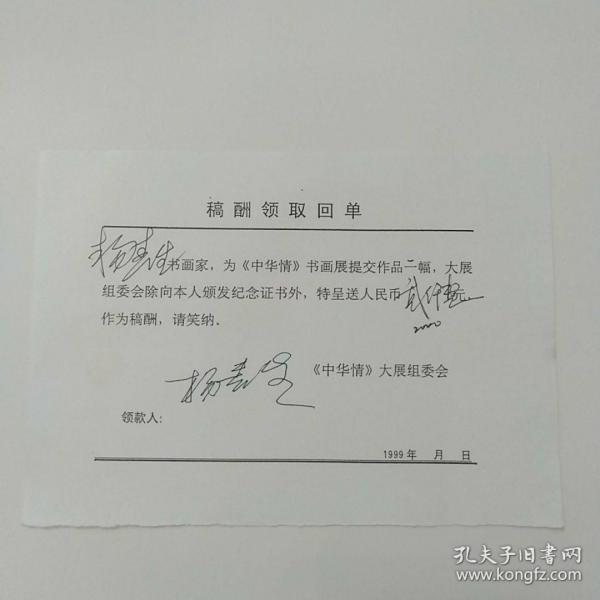 稿酬领取回单
书画家，为《中华情》书画展提交作品二幅，大展
组委会除向本人颁发纪念证书外，特呈送人民币贰仟元
2000
作为稿酬，请笑纳．
《中华情》大展组委会
领款人：
1999年 月 日
孔夫子旧书网
www.kongfz.com